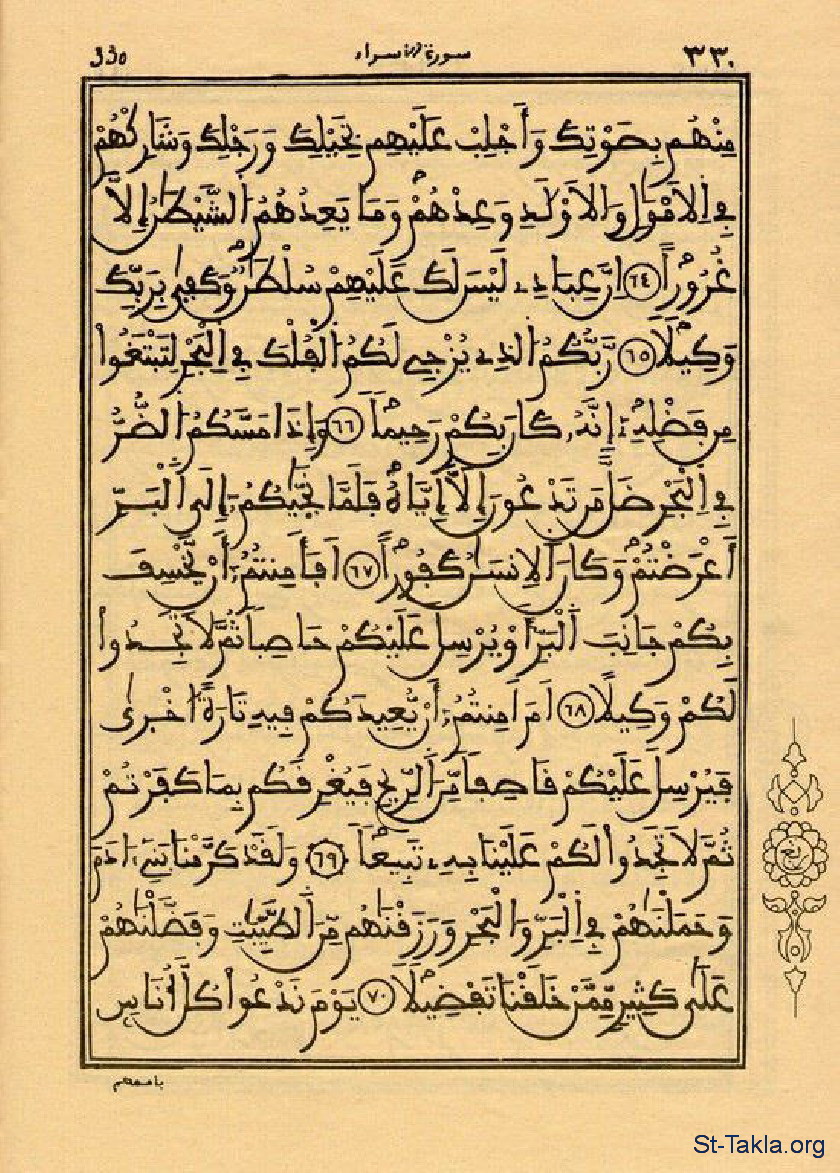 330 سورة الاسراء ٣٣٠
مِنْهُم بِصَوْتِكَ وَأَجْلِبْ عَلَيْهِم بِخَيْلِكَ وَرَجْلِكَ وَشَارِكْهُمْ
فِي اِلَامْوَٰلِ وَالَاوْلَٰدِ وَعِدْهُمْ وَمَا يَعِدُهُمُ الشَّيْطَٰنُ إِلَّا
غُرُوراً ٦٤ اِنَّ عِبَادِے لَيْسَ لَكَ عَلَيْهِمْ سُلْطَٰنٌ وَكَفِىٰ بِرَبِّكَ
وَكِيلًا ٦٥ رَّبُّكُمُ الذِے يُزْجِے لَكُمُ الْفُلْكَ فِے اِلْبَحْرِ لِتَبْتَغُوا
مِن فَضْلِهِۦٓ إِنَّهُۥ كَانَ بِكُمْ رَحِيماً ٦٦ وَإِذَا مَسَّكُمُ الضُّرُّ
فِے اِلْبَحْرِ ضَلَّ مَن تَدْعُونَ إِلَّا إِيَّاهُ فَلَمَّا نَجَّيٰكُمُۥٓ إِلَى اَلْبَرِّ
أَعْرَضْتُمْ وَكَانَ اَلِانسَٰنُ كَفُوراً ٦٧ اَفَأَمِنتُمُۥٓ أَنْ يَّخْسِفَ
بِكُمْ جَانِبَ اَلْبَرِّ أَوْ يُرْسِلَ عَلَيْكُمْ حَاصِباً ثُمَّ لَا تَجِدُوا
لَكُمْ وَكِيلًا ٦٨ اَمَ اَمِنتُمُۥٓ أَنْ يُّعِيدَكُمْ فِيهِ تَارَةً اُخْرىٰ
فَيُرْسِلَ عَلَيْكُمْ قَاصِفاً مِّنَ اَلرِّيحِ فَيُغْرِقَكُم بِمَا كَفَرْتُمْ
ثُمَّ لَا تَجِدُوا لَكُمْ عَلَيْنَا بِهِۦ تَبِيعاً ٦٩ وَلَقَدْ كَرَّمْنَا بَنِےٓ ءَادَمَ
وَحَمَلْنَٰهُمْ فِے اِلْبَرِّ وَالْبَحْرِ وَرَزَقْنَٰهُم مِّنَ اَلطَّيِّبَٰتِ وَفَضَّلْنَٰهُمْ
عَلَىٰ كَثِيرٍ مِّمَّنْ خَلَقْنَا تَفْضِيلًا ٧٠ يَوْمَ نَدْعُوا كُلَّ أُنَاسِ
بإمامهم
St-Takla.org